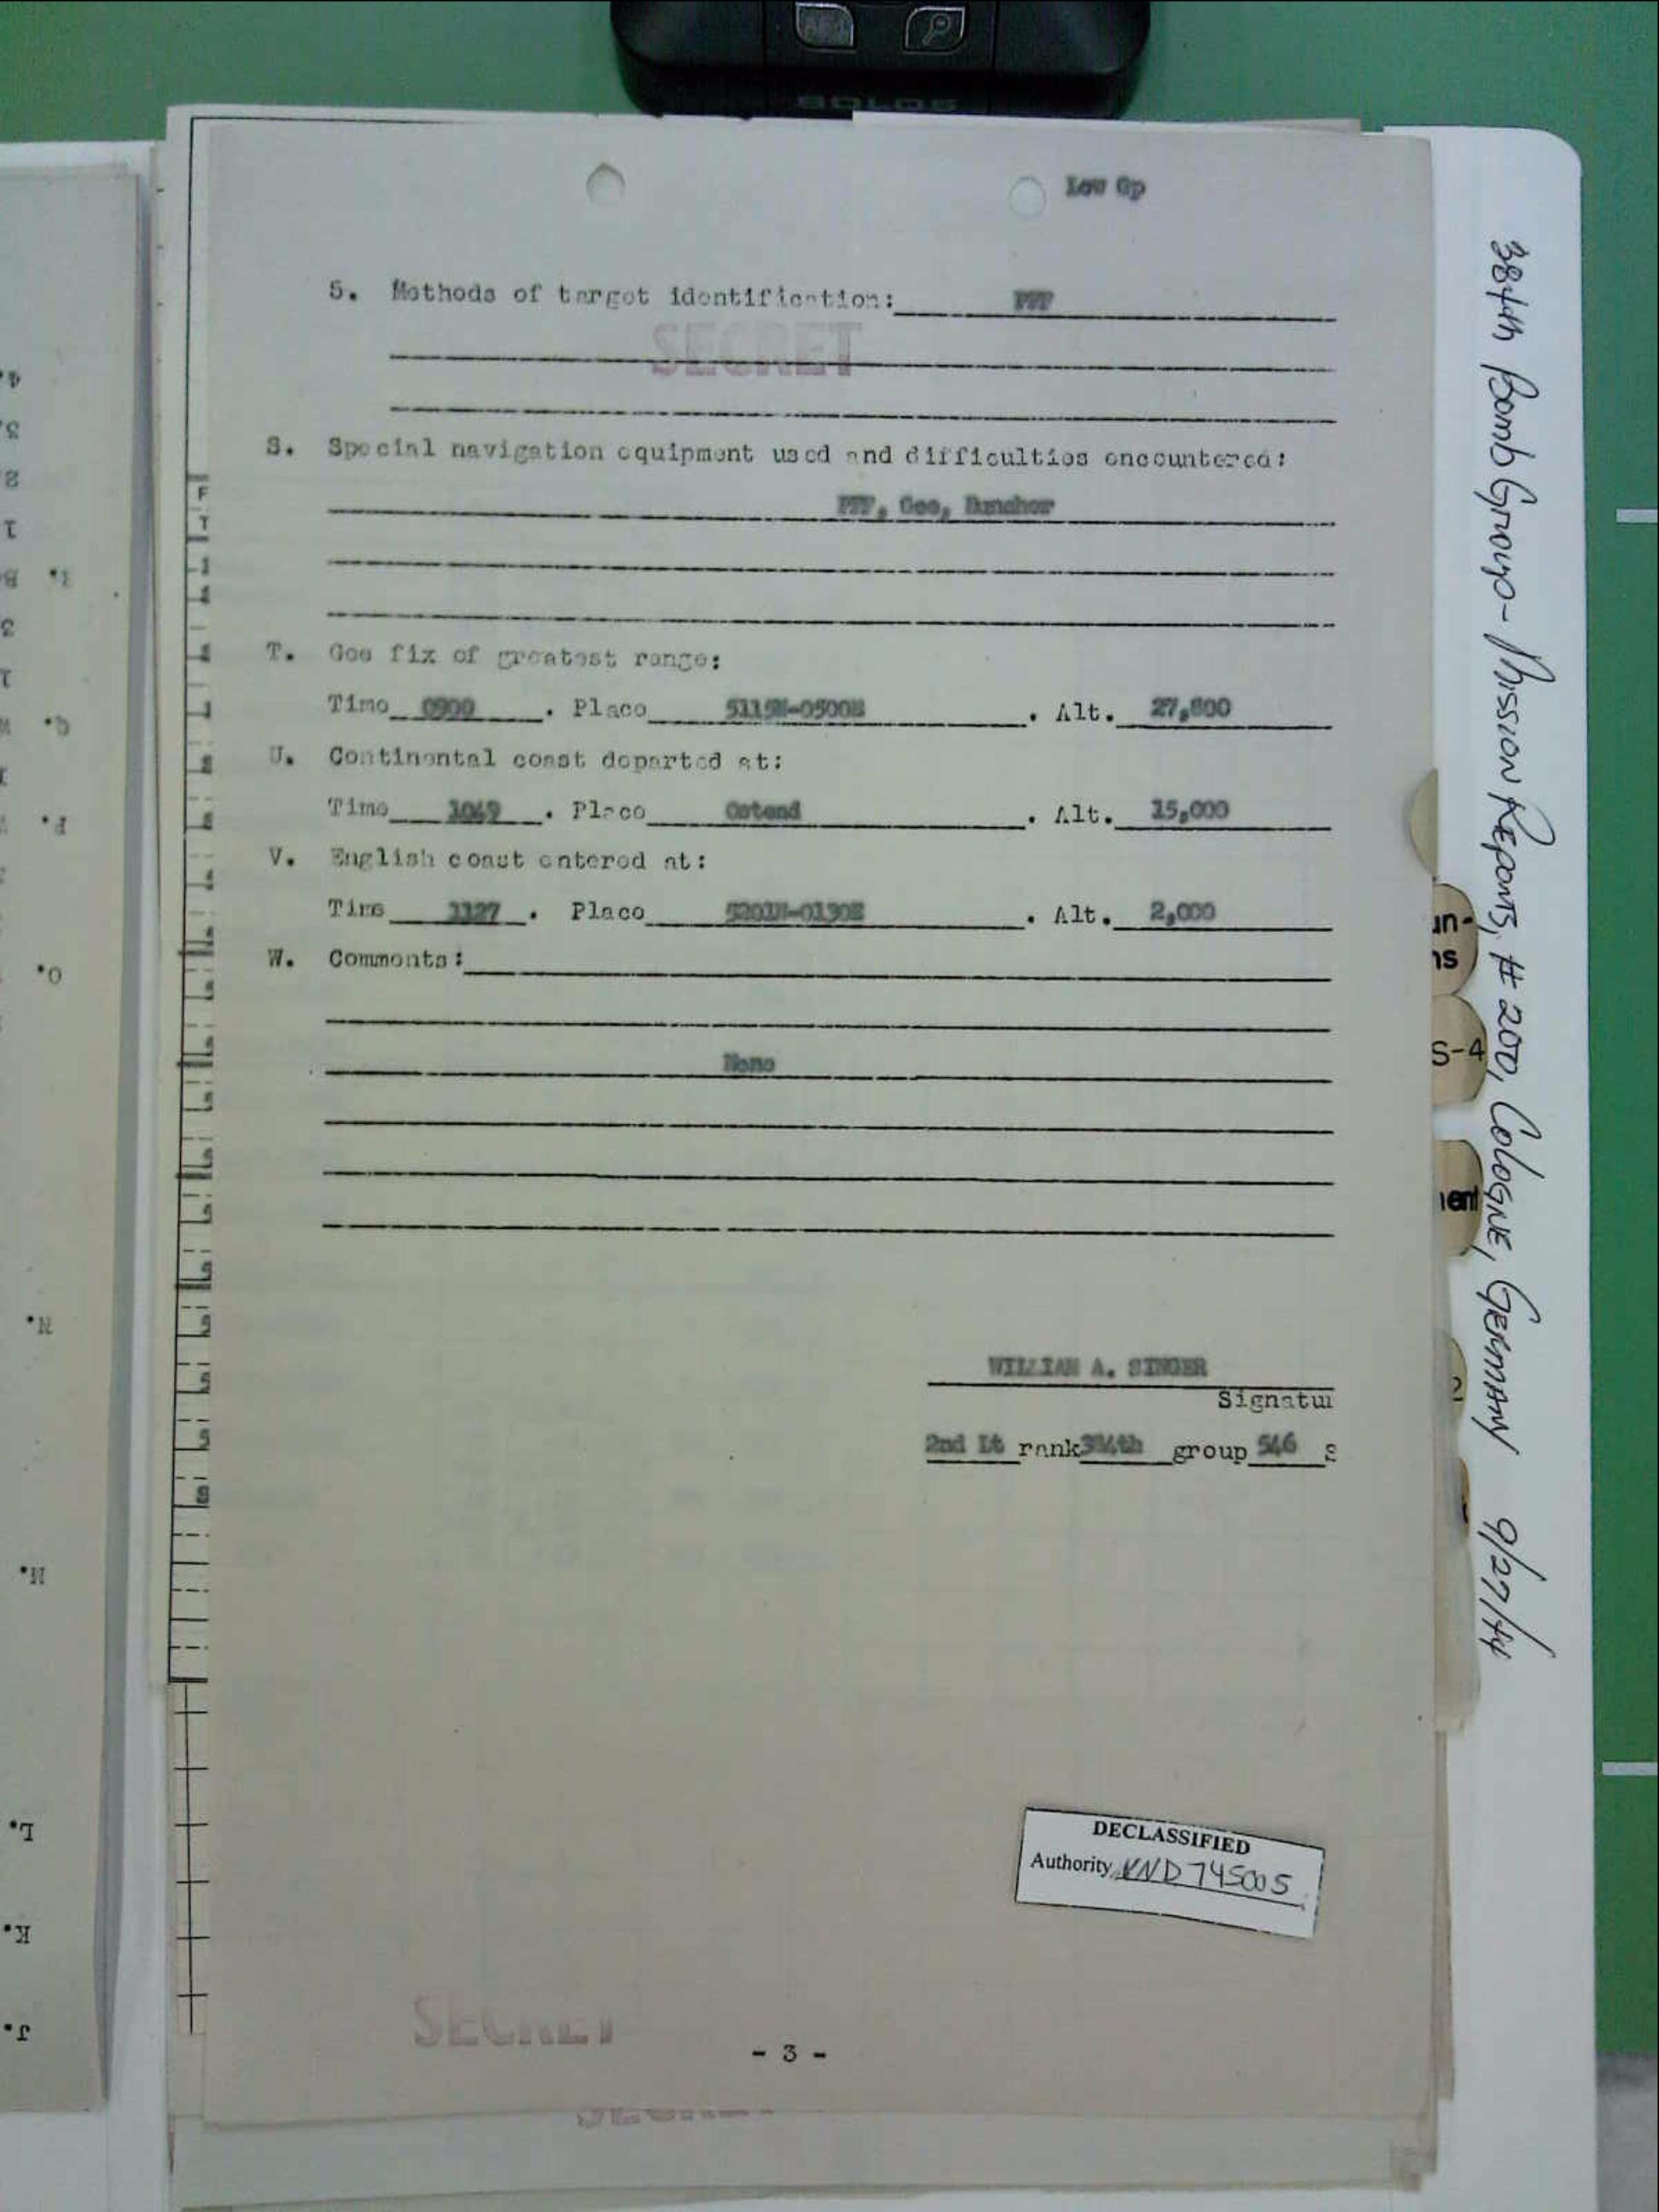 SOLOS
Low Gp
5. Methods of target identification: PFF
SECRET
S. Special navigation equipment used and difficulties encountered:
PFF, Gee, Buncher
T. Gee fix of greatest range:
Time 0900 . Place 5115N-0500E . Alt. 27,800
U. Continental coast departed at:
Time 1049 . Place Ostend . Alt. 15,000
V. English coast entered at:
Time 1127 . Place 5201N-0130E . Alt. 2,000
W. Comments:
None
WILLIAM A. SINGER
Signatur
2nd Lt rank 384th group 546 s
DECLASSIFIED
Authority NND 745005
SECRET
- 3 -
SECRET
384th Bomb Group - Mission Reports, # 200, Cologne, Germany 9/27/44
un-
ns
S-4
ent
2
4.
3.
2
1
I. B
3
1
G.
P.
O.
N.
M.
L.
K.
J.
F
T